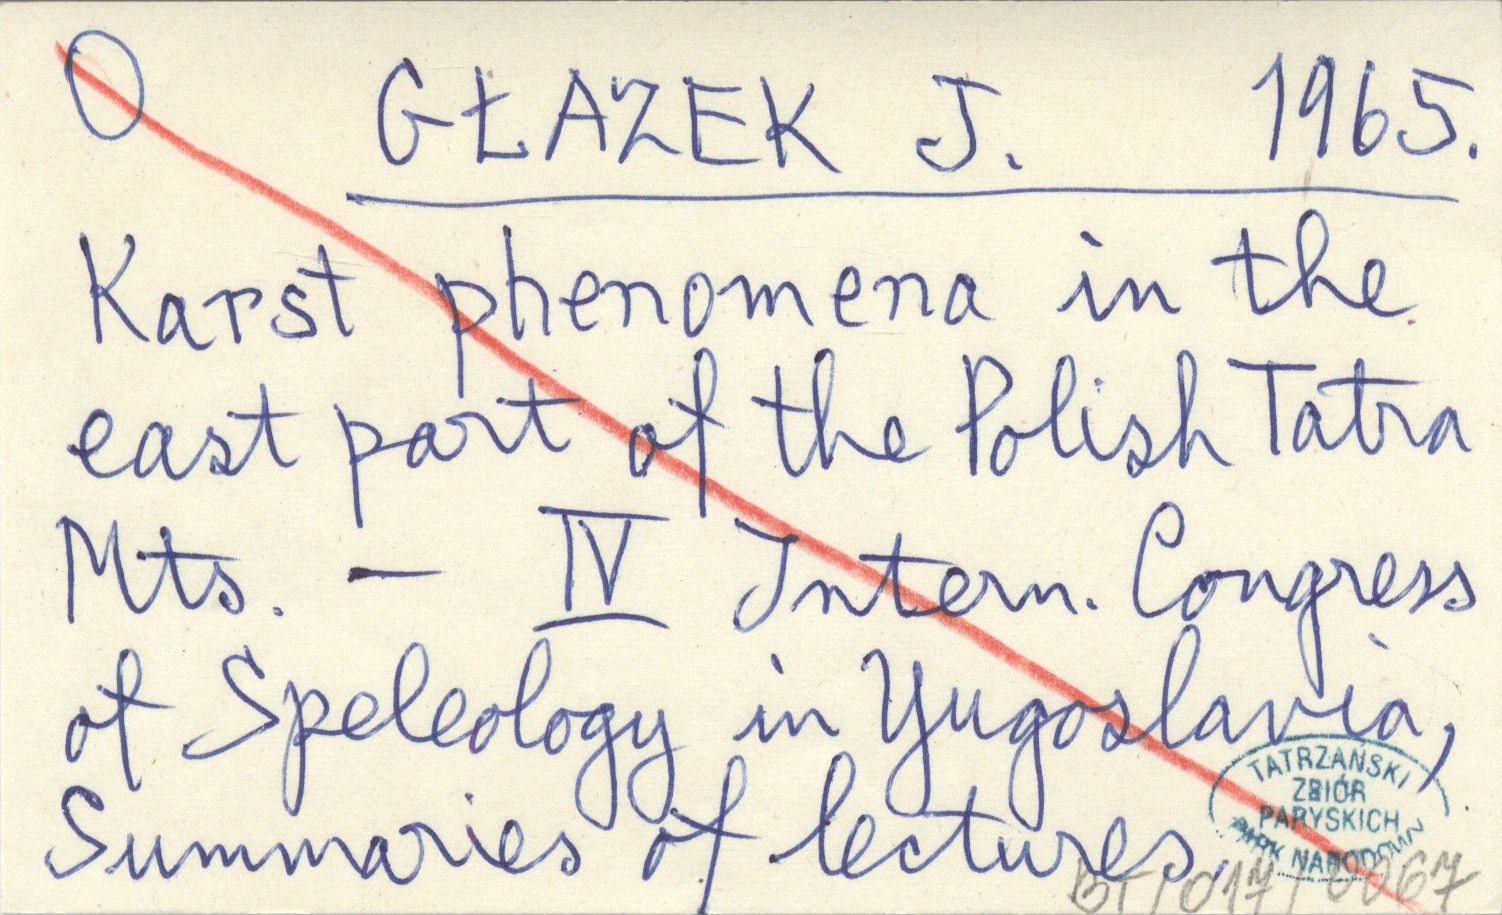 O GŁAZEK J. 1965.
Karst phenomena in the
east part of the Polish Tatra
Mts. — IV Intern. Congress
of Speleology in Yugoslavia,
Summaries of lectures.
TATRZAŃSKI
ZBIÓR
PARYSKICH
PARK NARODOWY
BT/017/0067